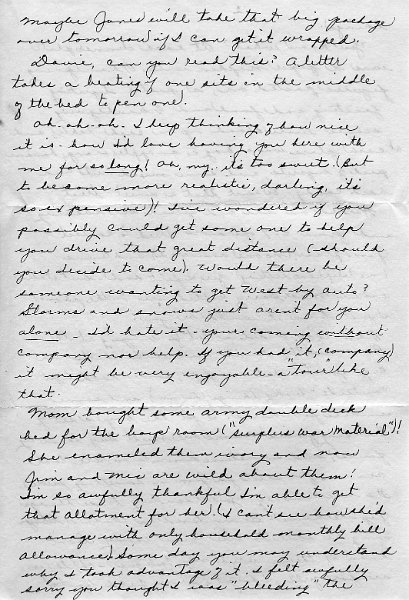 Maybe Janes will take that big package
over tomorrow if I can get it wrapped.
Davie, can you read this? A letter
takes a beating if one sits in the middle
of the bed to pen one!
Oh-oh-oh. I keep thinking of how nice
it is - how I'd love having you here with
me for so long! Oh, my, it's too sweet. (But
to be some more realistic, darling, it's
so expensive)! I've wondered if you
possibly could get some one to help
you drive that great distance (should
you decide to come). Would there be
someone wanting to get West by auto?
Storms and snows just aren't for you
alone - I'd hate it - your coming without
company nor help. If you had "it", (company)
it might be very enjoyable - a "tour" like
that.
Mom bought some army double deck
bed for the boys' room ("surplus war material")!
She enameled them ivory and now
Jim and Mic are wild about them!
I'm so awfully thankful I'm able to get
that allotment for her! (I can't see how she'd
manage with only household monthly bill
allowance). Some day you may understand
why I took advantage of it. I felt awfully
sorry you thought I was "bleeding" the